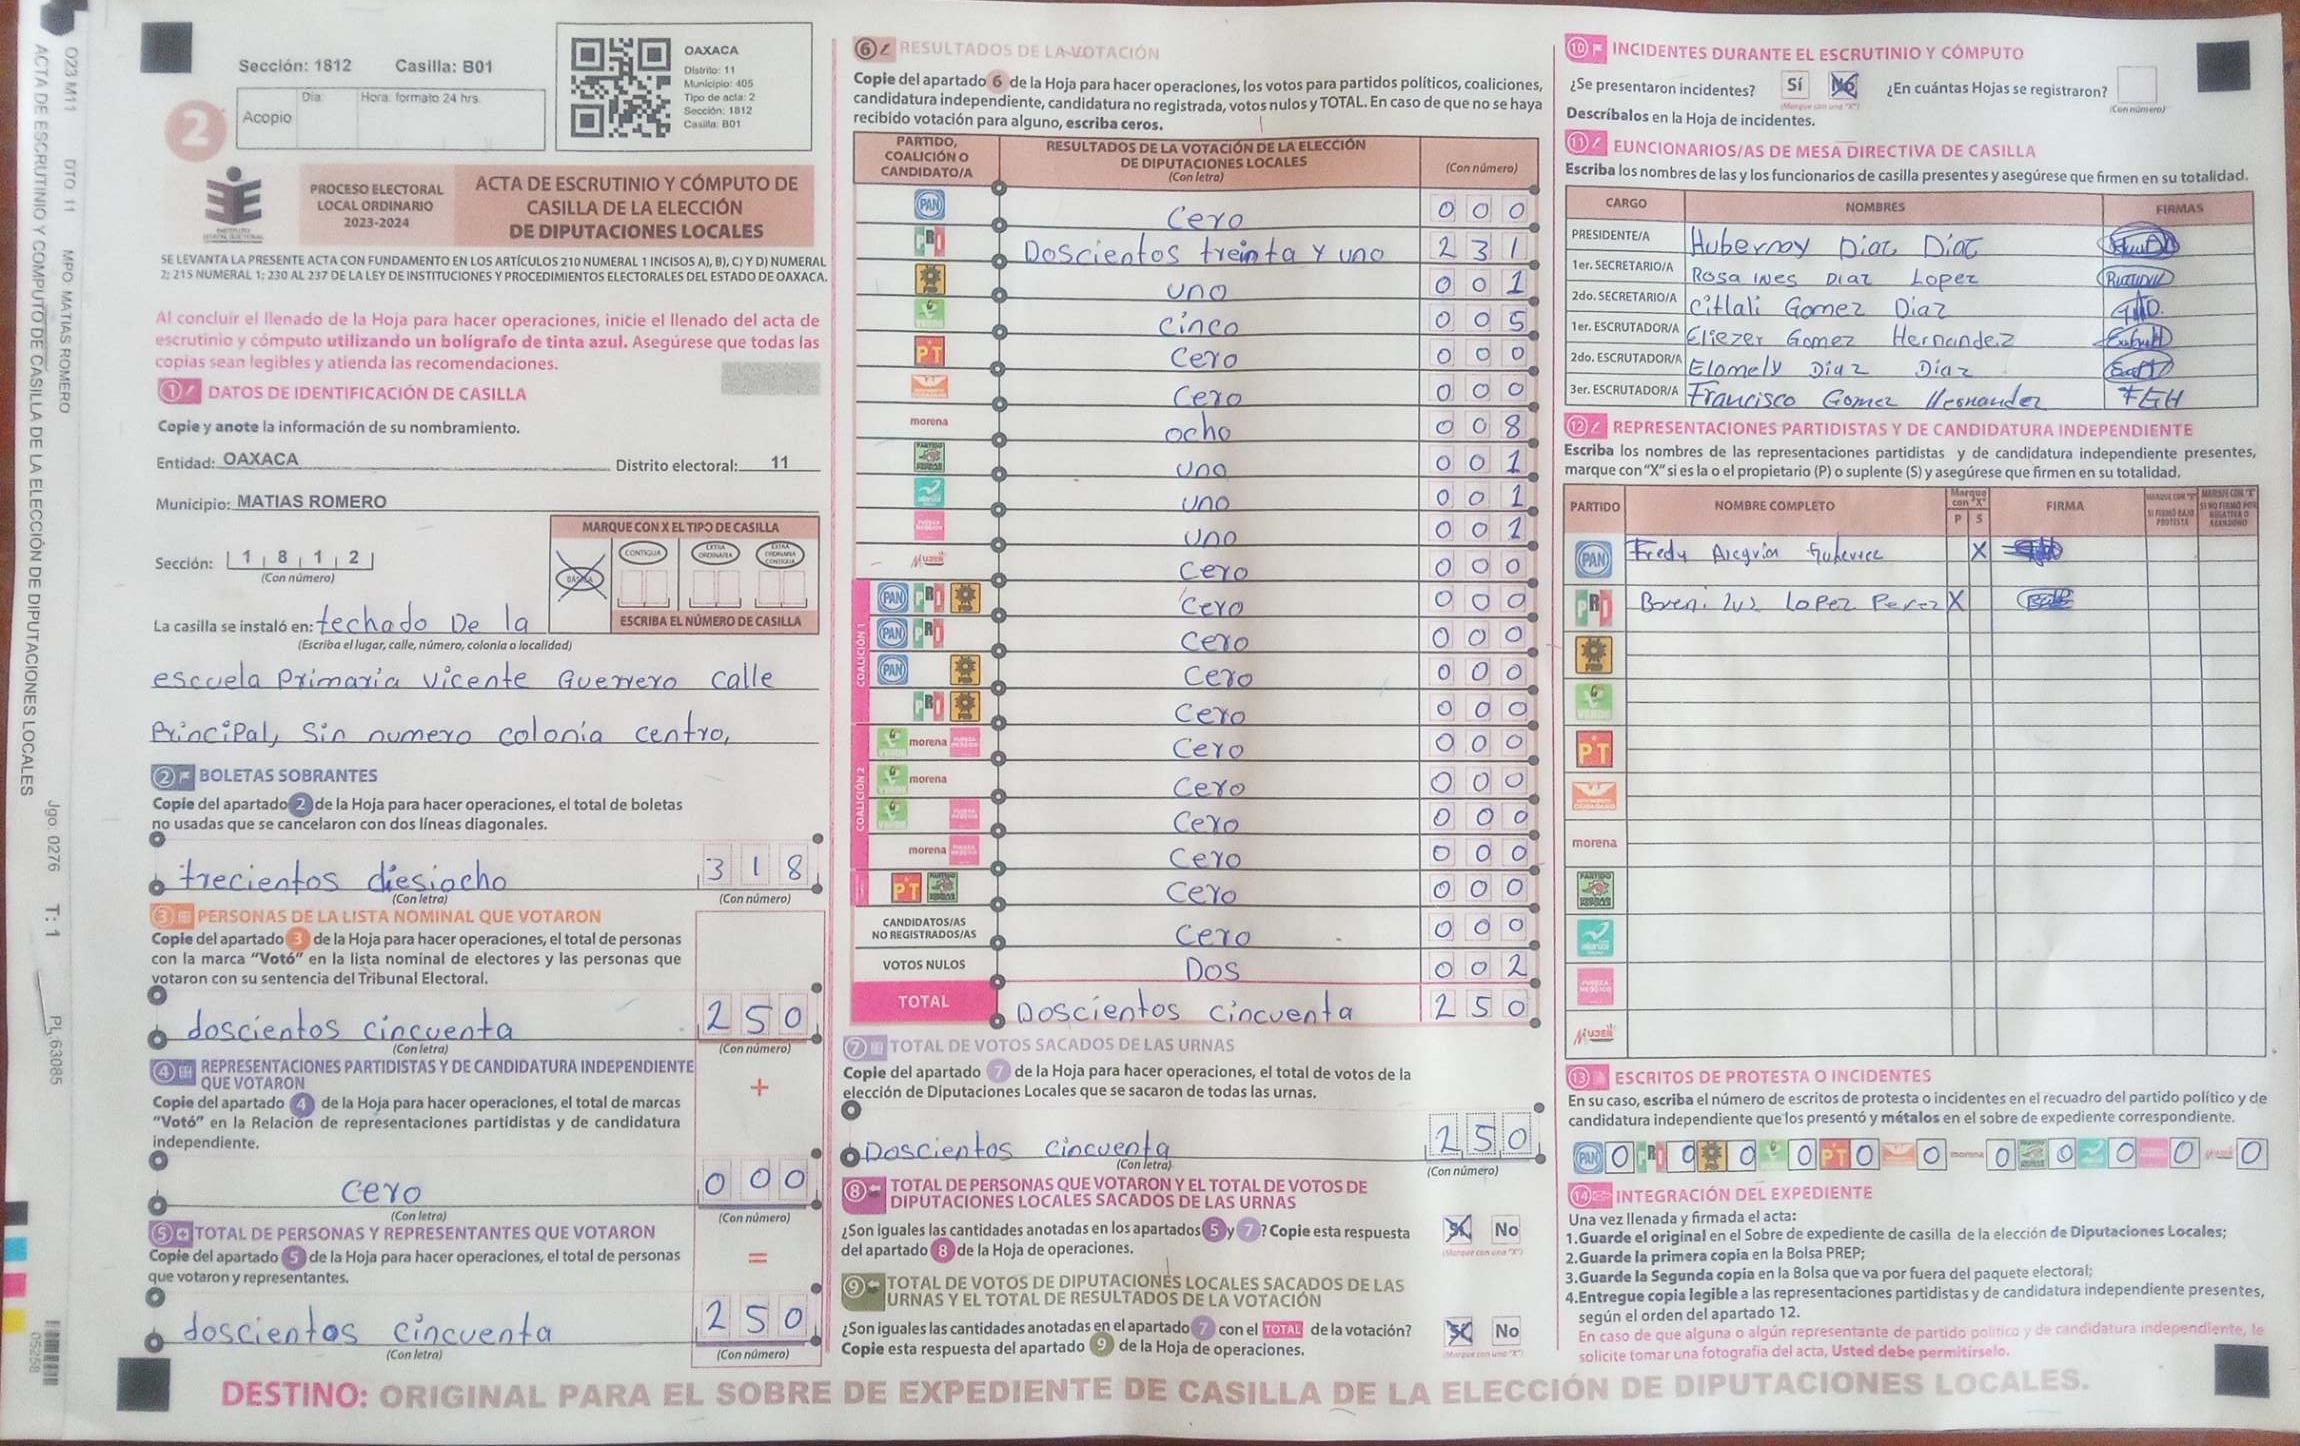 O23 M11 DTO. 11 MPO MATIAS ROMERO Jgo: 0276 T: 1 PI, 63085
ACTA DE ESCRUTINIO Y CÓMPUTO DE CASILLA DE LA ELECCIÓN DE DIPUTACIONES LOCALES
05258
Sección: 1812 Casilla: B01
Acopio Día: Hora: formato 24 hrs.
2
OAXACA
Distrito: 11
Municipio: 405
Tipo de acta: 2
Sección: 1812
Casilla: B01
PROCESO ELECTORAL
LOCAL ORDINARIO
2023-2024
ACTA DE ESCRUTINIO Y CÓMPUTO DE
CASILLA DE LA ELECCIÓN
DE DIPUTACIONES LOCALES
SE LEVANTA LA PRESENTE ACTA CON FUNDAMENTO EN LOS ARTÍCULOS 210 NUMERAL 1 INCISOS A), B), C) Y D) NUMERAL
2; 215 NUMERAL 1; 230 AL 237 DE LA LEY DE INSTITUCIONES Y PROCEDIMIENTOS ELECTORALES DEL ESTADO DE OAXACA.
Al concluir el llenado de la Hoja para hacer operaciones, inicie el llenado del acta de
escrutinio y cómputo utilizando un bolígrafo de tinta azul. Asegúrese que todas las
copias sean legibles y atienda las recomendaciones.
1 DATOS DE IDENTIFICACIÓN DE CASILLA
Copie y anote la información de su nombramiento.
Entidad: OAXACA Distrito electoral: 11
Municipio: MATIAS ROMERO
MARQUE CON X EL TIPO DE CASILLA
Sección: 1 8 1 2
(Con número)
BÁSICA CONTIGUA EXTRA ORDINARIA EXTRA ORDINARIA CONTIGUA
ESCRIBA EL NÚMERO DE CASILLA
La casilla se instaló en: techado De la
(Escriba el lugar, calle, número, colonia o localidad)
escuela Primaria Vicente Guerrero calle
Principal, Sin numero colonia centro,
2 BOLETAS SOBRANTES
Copie del apartado 2 de la Hoja para hacer operaciones, el total de boletas
no usadas que se cancelaron con dos líneas diagonales.
trecientos diesiocho 3 1 8
(Con letra) (Con número)
3 PERSONAS DE LA LISTA NOMINAL QUE VOTARON
Copie del apartado 3 de la Hoja para hacer operaciones, el total de personas
con la marca "Votó" en la lista nominal de electores y las personas que
votaron con su sentencia del Tribunal Electoral.
doscientos cincuenta 2 5 0
(Con letra) (Con número)
4 REPRESENTACIONES PARTIDISTAS Y DE CANDIDATURA INDEPENDIENTE
QUE VOTARON
+
Copie del apartado 4 de la Hoja para hacer operaciones, el total de marcas
"Votó" en la Relación de representaciones partidistas y de candidatura
independiente.
cero 0 0 0
(Con letra) (Con número)
5 TOTAL DE PERSONAS Y REPRESENTANTES QUE VOTARON
Copie del apartado 5 de la Hoja para hacer operaciones, el total de personas
que votaron y representantes.
=
doscientos cincuenta 2 5 0
(Con letra) (Con número)
6 RESULTADOS DE LA VOTACIÓN
Copie del apartado 6 de la Hoja para hacer operaciones, los votos para partidos políticos, coaliciones,
candidatura independiente, candidatura no registrada, votos nulos y TOTAL. En caso de que no se haya
recibido votación para alguno, escriba ceros.
PARTIDO,
COALICIÓN O
CANDIDATO/A
RESULTADOS DE LA VOTACIÓN DE LA ELECCIÓN
DE DIPUTACIONES LOCALES
(Con letra)
(Con número)
PAN Cero 0 0 0
PRI Doscientos treinta y uno 2 3 1
PRD uno 0 0 1
VERDE cinco 0 0 5
PT cero 0 0 0
cero 0 0 0
morena ocho 0 0 8
uno 0 0 1
uno 0 0 1
uno 0 0 1
Mujer cero 0 0 0
COALICIÓN 1
PAN PRI PRD cero 0 0 0
PAN PRI cero 0 0 0
PAN PRD cero 0 0 0
PRI PRD cero 0 0 0
COALICIÓN 2
VERDE morena cero 0 0 0
VERDE morena cero 0 0 0
VERDE cero 0 0 0
morena cero 0 0 0
PT cero 0 0 0
CANDIDATOS/AS
NO REGISTRADOS/AS cero 0 0 0
VOTOS NULOS Dos 0 0 2
TOTAL Doscientos cincuenta 2 5 0
7 TOTAL DE VOTOS SACADOS DE LAS URNAS
Copie del apartado 7 de la Hoja para hacer operaciones, el total de votos de la
elección de Diputaciones Locales que se sacaron de todas las urnas.
Doscientos cincuenta 2 5 0
(Con letra) (Con número)
8 TOTAL DE PERSONAS QUE VOTARON Y EL TOTAL DE VOTOS DE
DIPUTACIONES LOCALES SACADOS DE LAS URNAS
¿Son iguales las cantidades anotadas en los apartados 5 y 7? Copie esta respuesta
del apartado 8 de la Hoja de operaciones.
Sí No
(Marque con una "X")
9 TOTAL DE VOTOS DE DIPUTACIONES LOCALES SACADOS DE LAS
URNAS Y EL TOTAL DE RESULTADOS DE LA VOTACIÓN
¿Son iguales las cantidades anotadas en el apartado 7 con el TOTAL de la votación?
Copie esta respuesta del apartado 9 de la Hoja de operaciones.
Sí No
(Marque con una "X")
10 INCIDENTES DURANTE EL ESCRUTINIO Y CÓMPUTO
¿Se presentaron incidentes? Sí No ¿En cuántas Hojas se registraron?
(Marque con una "X") (Con número)
Descríbalos en la Hoja de incidentes.
11 FUNCIONARIOS/AS DE MESA DIRECTIVA DE CASILLA
Escriba los nombres de las y los funcionarios de casilla presentes y asegúrese que firmen en su totalidad.
CARGO NOMBRES FIRMAS
PRESIDENTE/A Hubernoy Diaz Diaz
1er. SECRETARIO/A Rosa ines Diaz Lopez
2do. SECRETARIO/A Citlali Gomez Diaz
1er. ESCRUTADOR/A Eliezer Gomez Hernandez
2do. ESCRUTADOR/A Elomely Diaz Diaz
3er. ESCRUTADOR/A Francisco Gomez Hernandez FGH
12 REPRESENTACIONES PARTIDISTAS Y DE CANDIDATURA INDEPENDIENTE
Escriba los nombres de las representaciones partidistas y de candidatura independiente presentes,
marque con "X" si es la o el propietario (P) o suplente (S) y asegúrese que firmen en su totalidad.
PARTIDO NOMBRE COMPLETO Marque con "X" P S FIRMA
PAN Fredy X
PRI Lopez Perez X
VERDE
PT
morena
Mujer
13 ESCRITOS DE PROTESTA O INCIDENTES
En su caso, escriba el número de escritos de protesta o incidentes en el recuadro del partido político y de
candidatura independiente que los presentó y métalos en el sobre de expediente correspondiente.
PAN 0 PRI 0 0 0 PT 0 0 morena 0 0 0 0 0
14 INTEGRACIÓN DEL EXPEDIENTE
Una vez llenada y firmada el acta:
1.Guarde el original en el Sobre de expediente de casilla de la elección de Diputaciones Locales;
2.Guarde la primera copia en la Bolsa PREP;
3.Guarde la Segunda copia en la Bolsa que va por fuera del paquete electoral;
4.Entregue copia legible a las representaciones partidistas y de candidatura independiente presentes,
según el orden del apartado 12.
En caso de que alguna o algún representante de partido político y de candidatura independiente, le
solicite tomar una fotografía del acta, Usted debe permitírselo.
DESTINO: ORIGINAL PARA EL SOBRE DE EXPEDIENTE DE CASILLA DE LA ELECCIÓN DE DIPUTACIONES LOCALES.